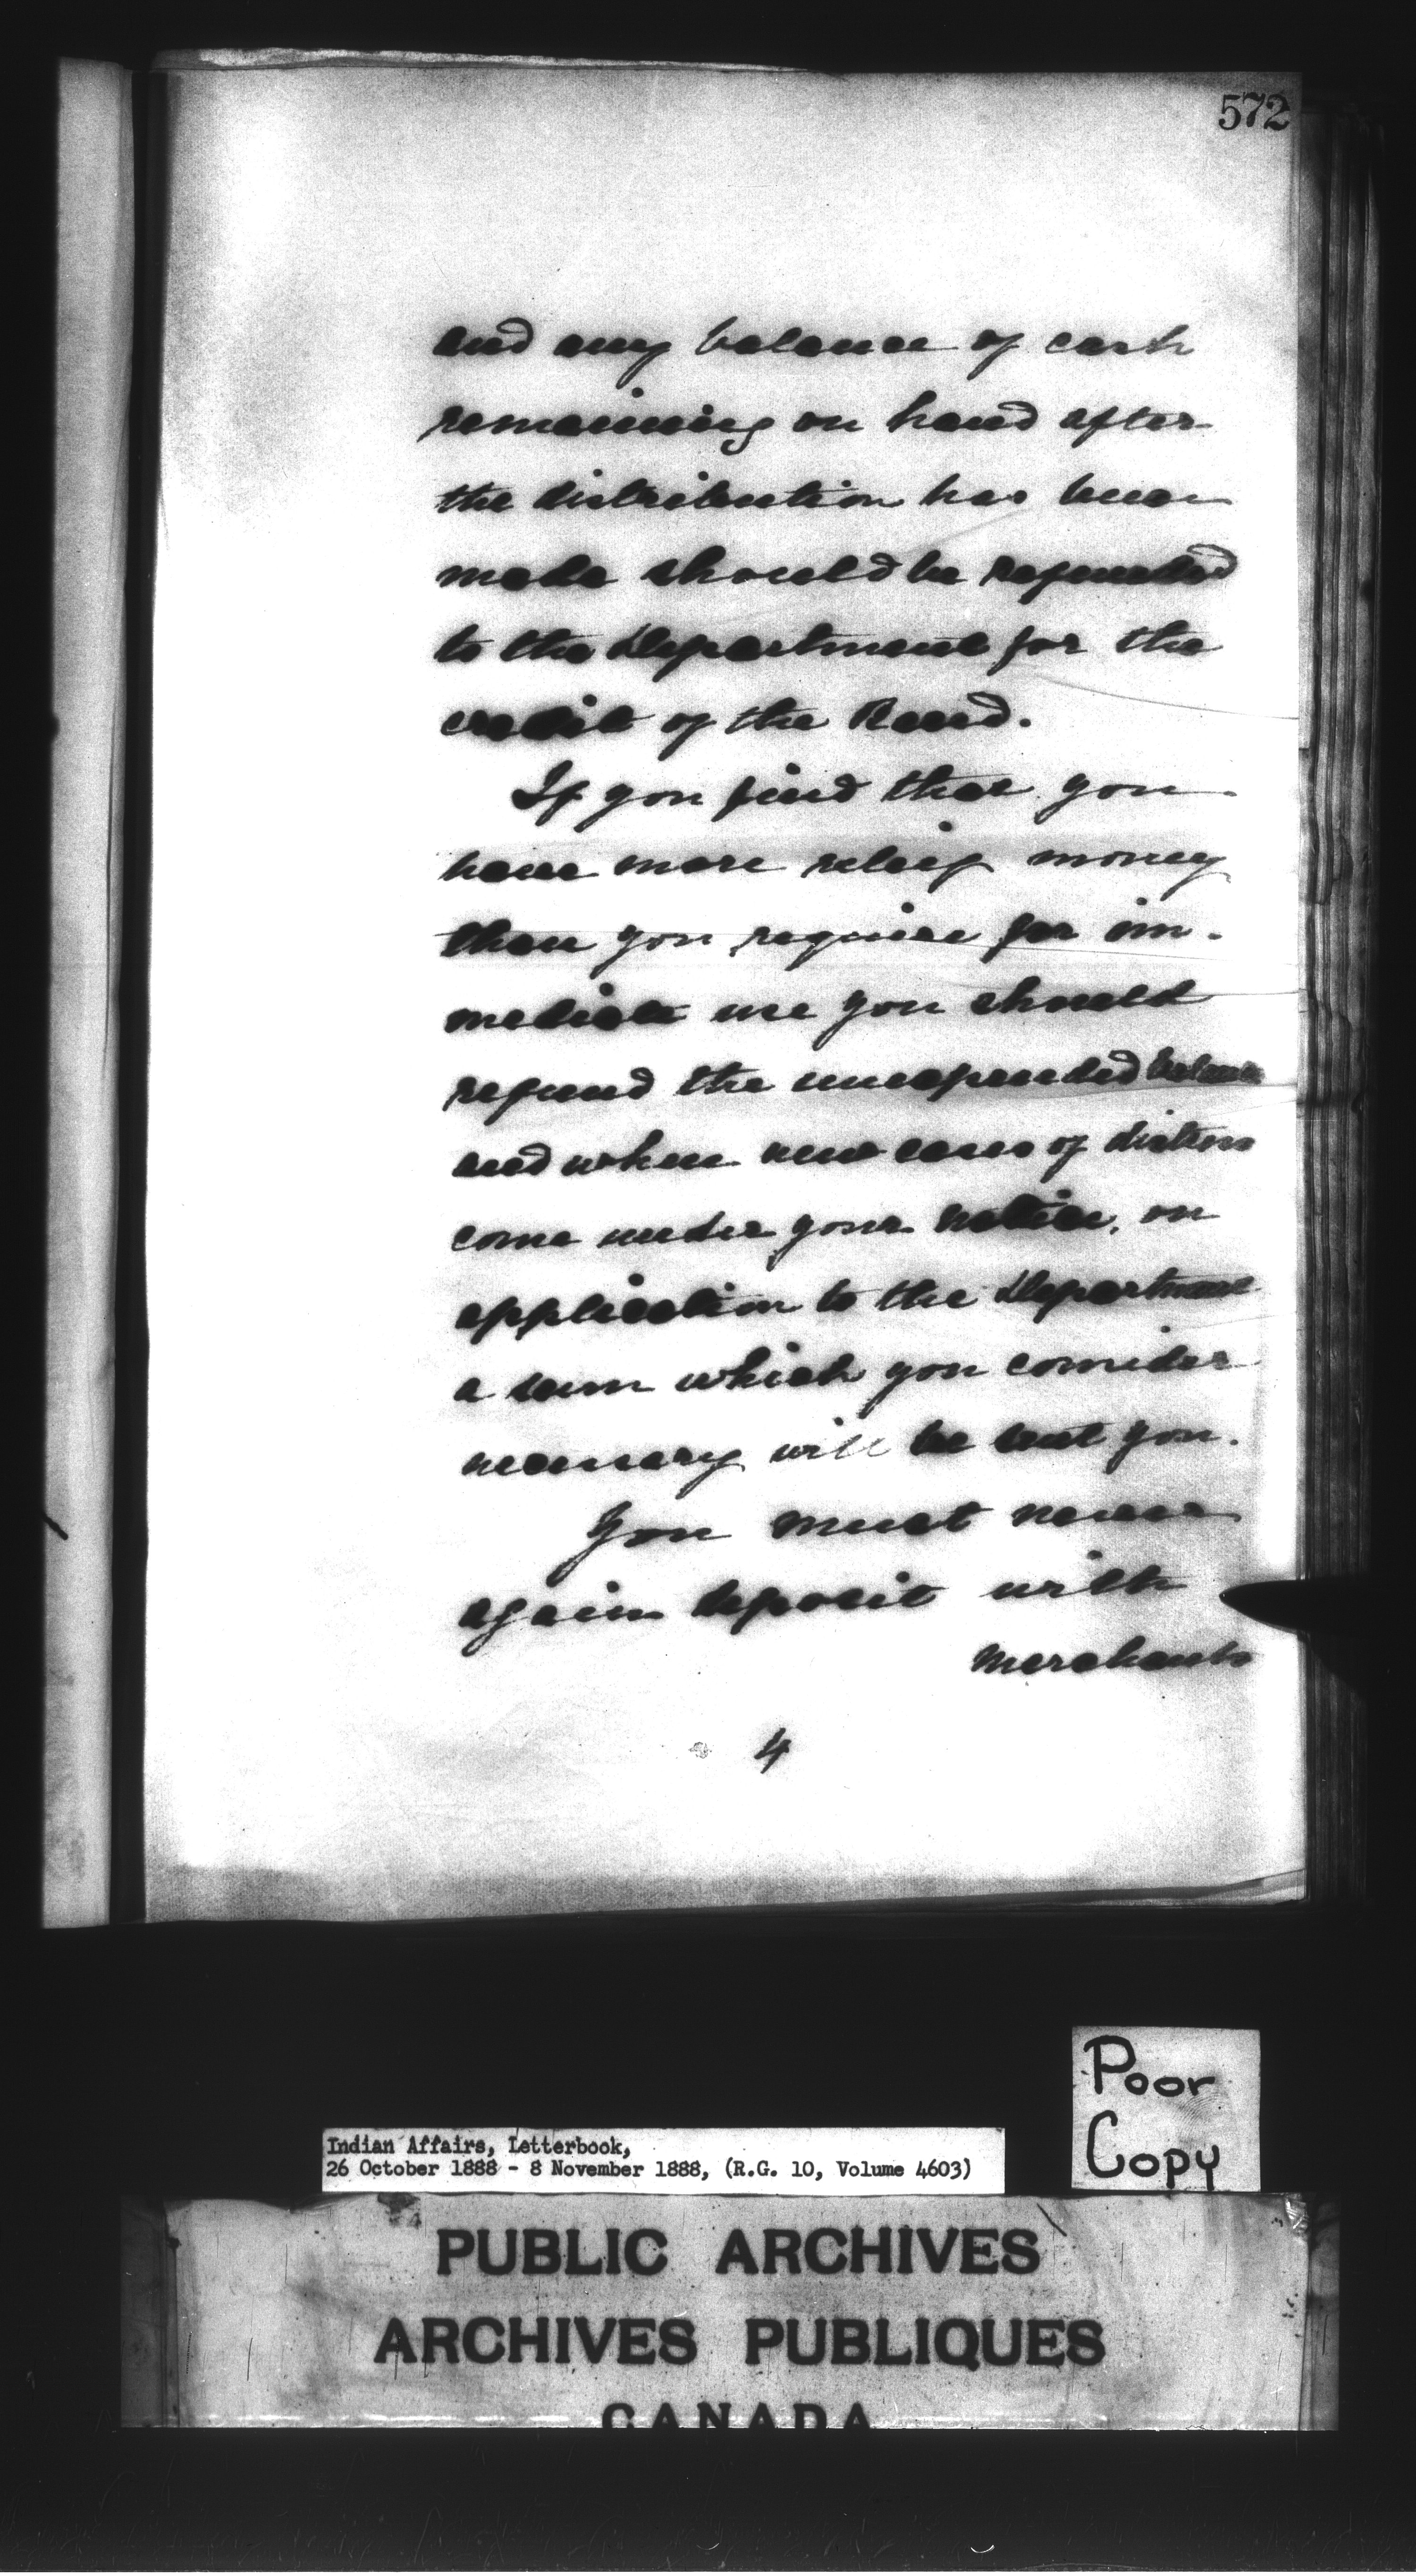 572
and any balance of cash
remaining on hand after
the distribution has been
made should be refunded
to the Department for the
credit of the Band.
If you find that you
have more relief money
than you require for im-
mediate use you should
refund the unexpended balance
and when new cases of distress
come under your notice, on
application to the Department
a sum which you consider
necessary will be sent you.
You must never
again deposit with
merchants
4
Poor
Copy
Indian Affairs, Letterbook,
26 October 1888 - 8 November 1888, (R.G. 10, Volume 4603)
PUBLIC ARCHIVES
ARCHIVES PUBLIQUES
CANADA